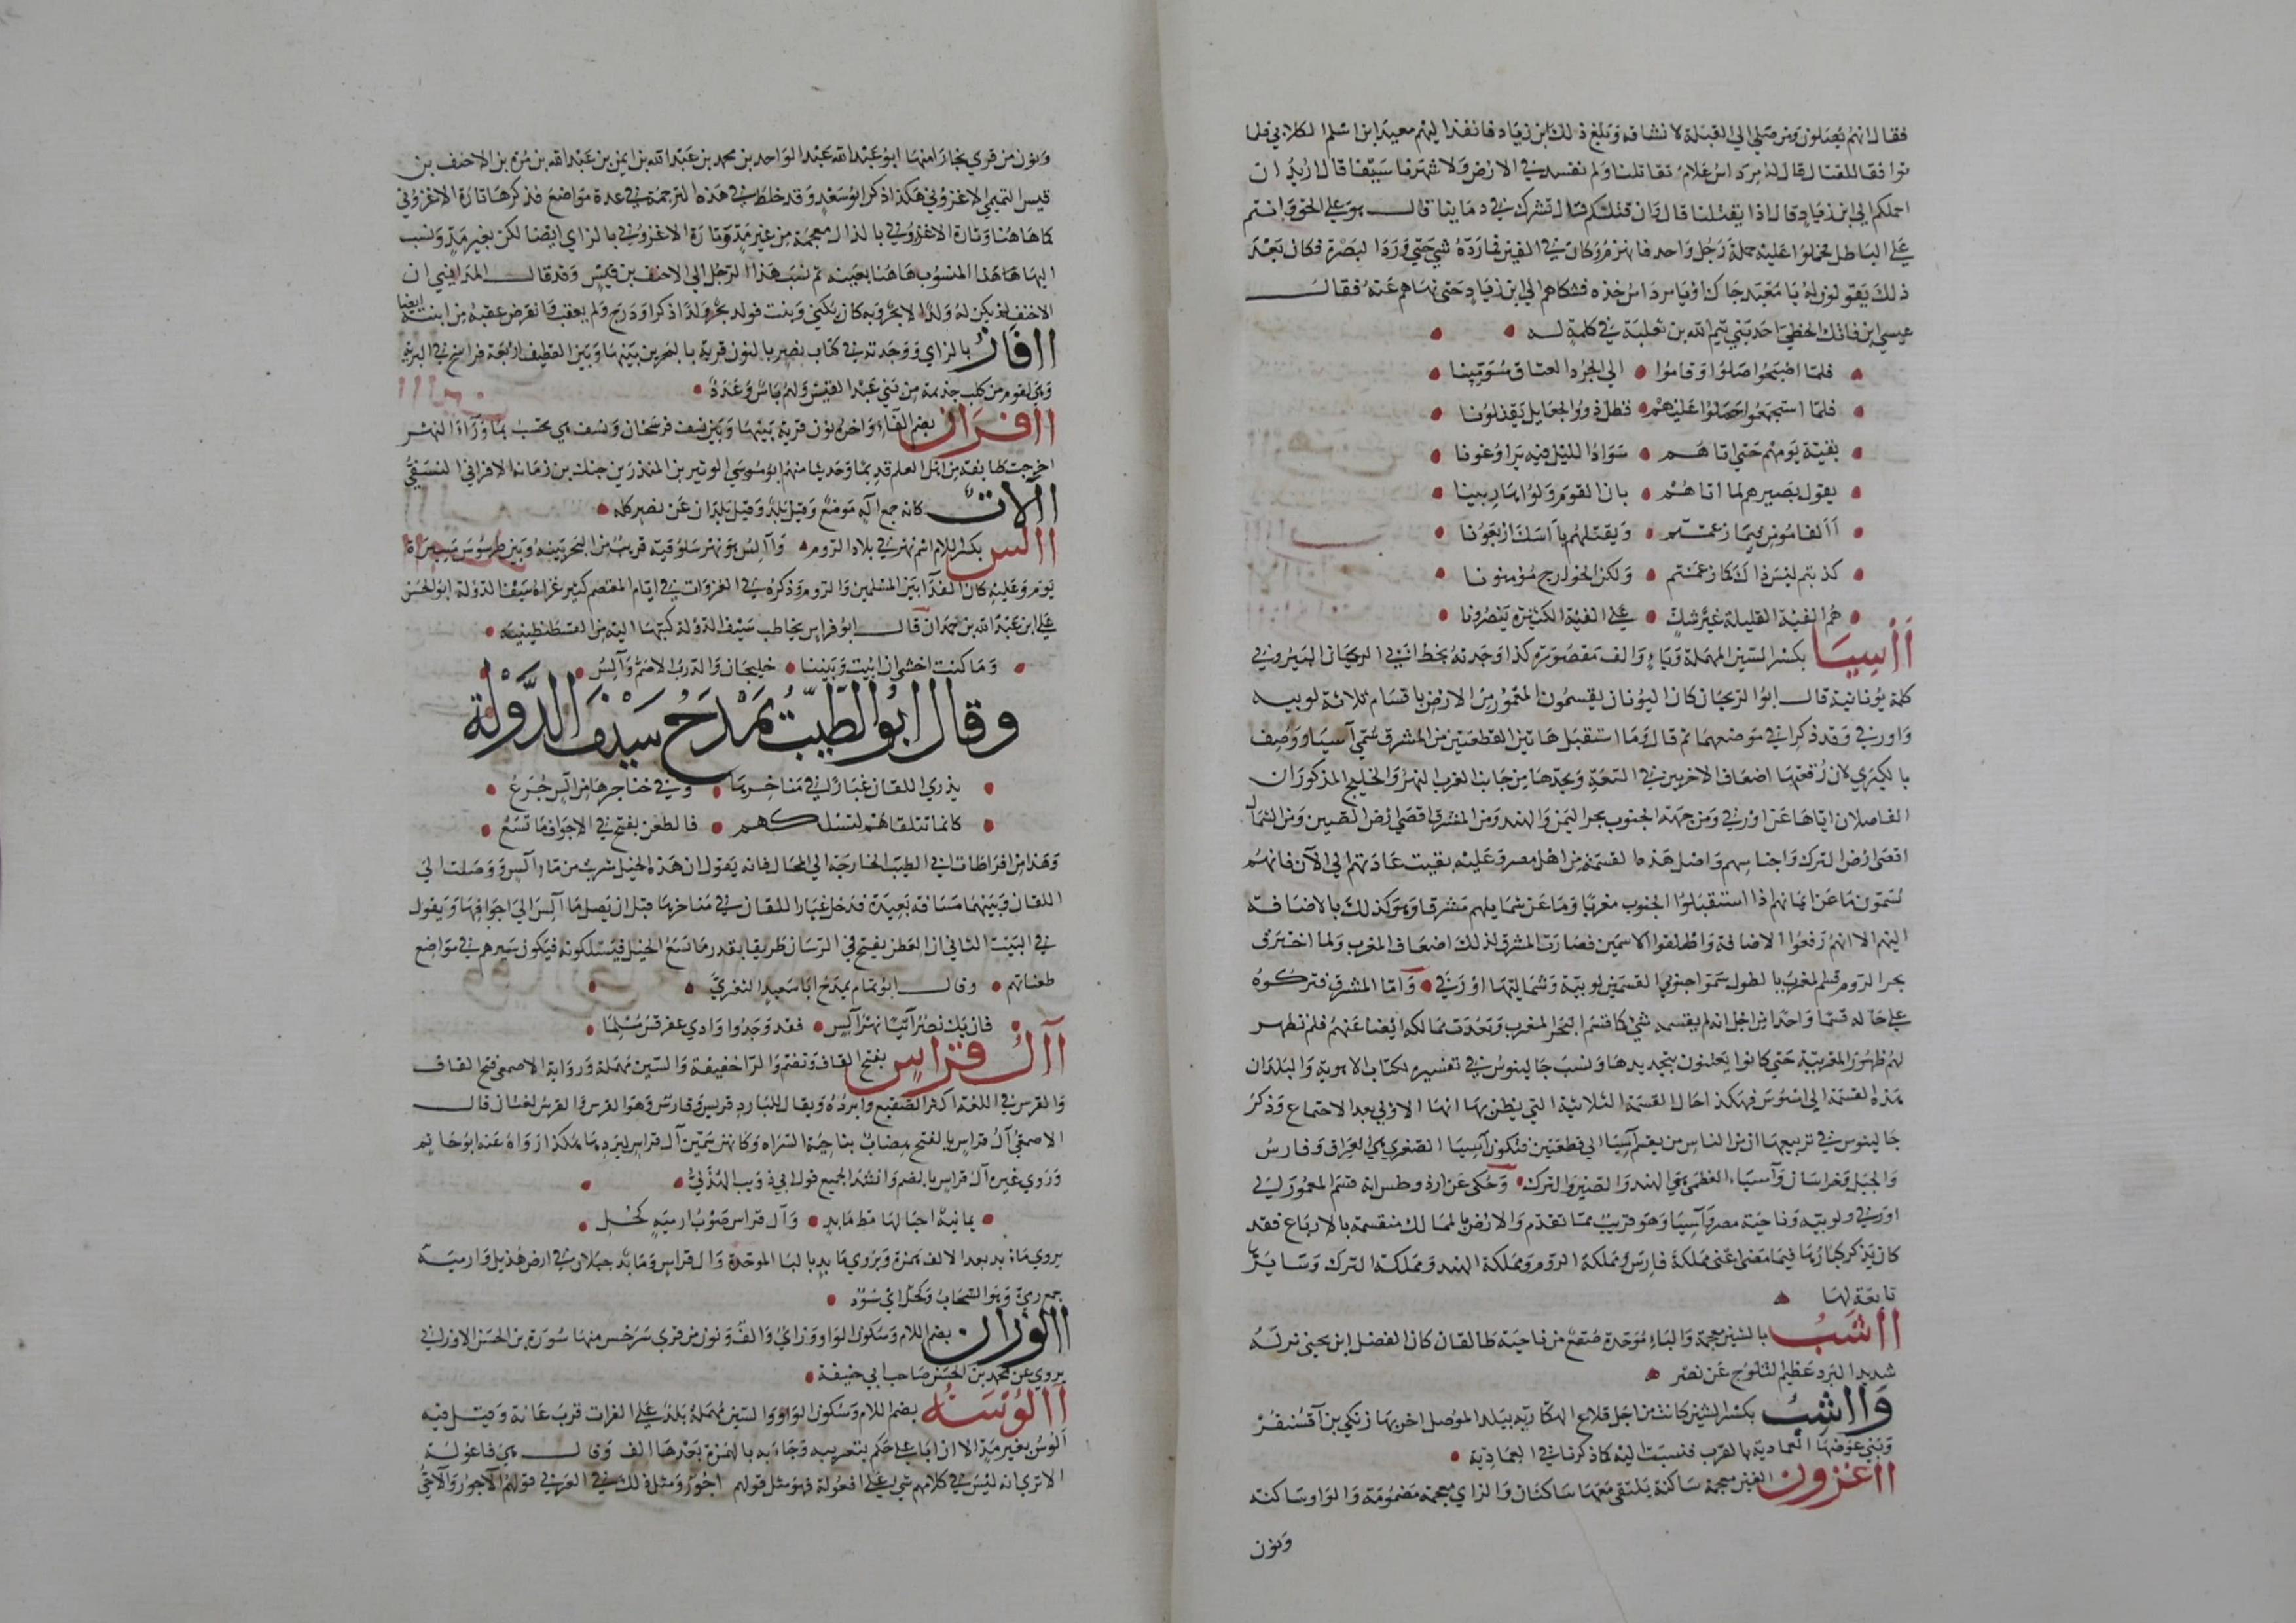 فقال انهم يصلون ومن صلى الى القبلة لا نشاقه وبلغ ذلك ابن زياد فانفذ اليهم معبد ابن اسلم الكلابي فلما
توا فقا للقتال قال له مرداس علام تقاتلنا ولم نفسد في الارض ولا شهرنا سيفا قال اريد ان
احملكم الى ابن زياد قال اذا يقتلنا قال وان قتلكم قال تشرك في دمائنا قال هو على الحق وانتم
على الباطل فحملوا عليه حملة رجل واحد فانهزم وكان في الفين فما رده شي حتى ورد البصرة فكان بعد
ذلك يقولون له يا معبد جاك ابو مرداس خذه فشكاهم الى ابن زياد حتى نهاهم عنه فقال
عيسى ابن فاتك الخطي احد بني تيم الله بن ثعلبة في كلمة له
فلما اصبحوا صلوا وقاموا • الى الجرد العتاق مسومينا
فلما استجمعوا حملوا عليهم • فظل ذوو الجعايل يقتلونا
بقية يومهم حتى اتاهم • سواد الليل فيه يراوغونا
يقول بصيرهم لما اتاهم • بان القوم ولوا هاربينا
أألفا مومن فيما زعمتم • ويقتلهم بآسك اربعونا
كذبتم ليس ذاك كما زعمتم • ولكن الخوارج مومنونا
هم الفئة القليلة غير شك • على الفئة الكثيرة ينصرونا
آسيا بكسر السين المهملة وياء والف مقصورة كذا وجدته بخط ابي الريحان البيروني
كلمة يونانية قال ابو الريحان كان اليونان يقسمون المعمور من الارض باقسام ثلاثة لوبيه
واورفي وقد ذكرا في موضعهما ثم قال وما استقبل هاتين القطعتين من المشرق سمى آسيا ووصف
بالكبرى لان رقعتها اضعاف الاخريين في السعة ويحدها من جانب الغرب النهر والخليج المذكوران
الفاصلان اياها عن اورفي ومن جهة الجنوب بحر اليمن والهند ومن المشرق اقصى ارض الصين ومن الشمال
اقصى ارض الترك واجناسهم واصل هذه القسمة من اهل مصر وعليه بقيت عادتهم الى الآن فانهم
يسمون ما عن ايمانهم اذا استقبلوا الجنوب مغربا وما عن شمايلهم مشرقا وهو كذلك بالاضافة
اليهم الا انهم رفعوا الاضافة واطلقوا الاسمين فصارت المشرق لذلك اضعاف المغرب ولما اخترق
بحر الروم قسم المغرب بالطول سموا جنوبي القسمين لوبية وشماليتها اورفي • واما المشرق فتركوه
على حاله قسما واحدا من اجل انه لم يقسمه شي كما قسم البحر المغرب وبعدت ممالكه ايضا عنهم فلم تظهر
لهم ظهور المغربية حتى كانوا يعلمون بتحديدها ونسب جالينوس في تفسيره لكتاب الاهوية والبلدان
هذه القسمة الى اسوس فهكذا حال القسمة الثلاثية التي يظن بها انها الاولى بعد الاجتماع وذكر
جالينوس في تربيعها ان من الناس من يقسم آسيا الى قطعتين فتكون آسيا الصغرى هي العراق وفارس
والجبل وخراسان وآسياء العظمى هي الهند والصين والترك • وحكى عن اروذوطس انه قسم المعمور الى
اورفي ولوبيه وناحية مصر وآسيا وهو قريب مما تقدم والارض بالممالك منقسمة بالارباع فقد
كان يذكر كبارها فيما مضى اعني مملكة فارس ومملكة الروم ومملكة الهند ومملكة الترك وسايرها
تابعة لها
آشب بالشين معجمة والباء موحدة صقع من ناحية طالقان كان الفضل ابن يحيى نزله
شديد البرد عظيم الثلوج عن نصر
وآشب بكسر الشين كانت من اجل قلاع الهكارية ببلد الموصل اخربها زنكي بن آقسنقر
وبنى عوضها العمادية بالقرب فنسبت اليه كما ذكرنا في العمادية
آغزون الغين معجمة ساكنة يلتقى معها ساكنان والزاي معجمة مضمومة والواو ساكنة
ونون
ونون من قرى بخارا منها ابو عبد الله عبد الواحد بن محمد بن عبد الله بن ايمن بن عبد الله بن مرة بن الاحنف بن
قيس التميمي الاغزوني هكذا ذكر ابو سعد وقد خلط في هذه الترجمة في عدة مواضع فذكرها تارة الاغزوني
كما هاهنا وتارة الاغذوني بالذال معجمة من غير مد وتارة الاغزوني بالزاي ايضا لكن بغير مد ونسب
اليها هذا المنسوب هاهنا بعينه ثم نسب هذا الرجل الى الاحنف بن قيس وقد قال المدايني ان
الاحنف لم يكن له ولد الا بحر وبه كان يكنى وبنت فولد بحر ولدا ذكرا ودرج ولم يعقب فانقرض عقبه من ابنته ايضا
آفاز بالزاي ووجدته في كتاب نصير بالنون قرية بالبحرين بينها وبين القطيف اربعة فراسخ في البرية
وهي لقوم من كلب جذيمة من بني عبد القيس ولهم باس وعدد
آفران بضم الفاء واخره نون قرية بينها وبين نسف فرسخان ونسف هي نخشب بما وراء النهر
اخرجت طايفة من اهل العلم قديما وحديثا منهم ابو موسى الوثير بن المنذر بن جنك بن زمانة الافراني النسفي
آلات كانه جمع آلة موضع وقيل بلد وقيل بلدان عن نصر كله
آلس بكسر اللام اسم نهر في بلاد الروم • وآلس هو نهر سلوقية قريب من البحر بينه وبين طرسوس مسيرة
يوم وعليه كان الفدا بين المسلمين والروم وذكره في الغزوات في ايام المعتصم كثير غزاه سيف الدولة ابو الحسن
علي ابن عبد الله بن حمدان قال ابو فراس يخاطب سيف الدولة كتبها اليه من القسطنطينية
وما كنت اخشى ان ابيت وبيننا • خليجان والدرب الاصم وآلس
وقال ابو الطيب يمدح سيف الدولة
يذري اللقان غبارا في مناخرها • وفي حناجرها من آلس جرع
كانما تتلقاهم لتسلكهم • فالطعن يفتح في الاجواف ما تسع
وهذا من افراطات ابي الطيب الخارجة الى المحال فانه يقول ان هذه الخيل شربت من ماء آلس ووصلت الى
اللقان وبينهما مسافة بعيدة فدخل غبار اللقان في مناخرها قبل ان يصل ما آلس الى اجوافها ويقول
في البيت الثاني ان الطعن يفتح في الفرسان طريقا بقدر ما تسع الخيل فيسلكونه فيكون سيرهم في مواضع
طعناتهم • وقال ابو تمام يمدح ابا سعيد الثغري
فان يك نصرانيا نهر آلس • فقد وجدوا وادي عقرقس مسلما
آل قراس بفتح القاف وتضم والراء خفيفة والسين مهملة ورواية الاصمعي فتح القاف
والقرس في اللغة اكثر الصقيع وابرده ويقال للبارد قريس وقارس وهو القرس والقرس لغتان قال
الاصمعي آل قراس بالفتح هضاب بناحية السراه وكانهن سمين آل قراس لبردها هكذا رواه عنه ابو حاتم
وروى غيره آل قراس بالضم وانشد الجميع قول ابي ذويب الهذلي
يمانية احيا لها مظ مابد • وآل قراس صوب ارمية كحل
يروى مائد بعد الالف همزة ويروى مابد بالباء الموحدة وآل قراس ومابد جبلان في ارض هذيل وارمية
جمع رمي وهو السحاب وكحل اي سود
آلوزان بضم اللام وسكون الواو وزاي والف ونون من قرى سرخس منها سورة بن الحسن الاوزاني
يروى عن محمد بن الحسن صاحب ابي حنيفة
آلوسة بضم اللام وسكون الواو والسين مهملة بلد على الفرات قرب عانة وقيل فيه
الوس بغير مد الا ان ابا علي حكم بتعريبه وجاء به بالهمزة بعدها الف وقال هي فاعولة
الا ترى انه ليس في كلامهم شي على افعولة فهو مثل قولهم اجور ومثل ذلك في العربي قولهم الآجور والآخي